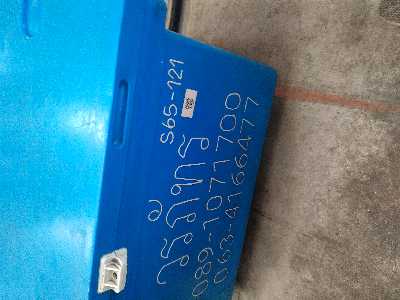 วรภัทร S65-121
089-1071700
063-4166477